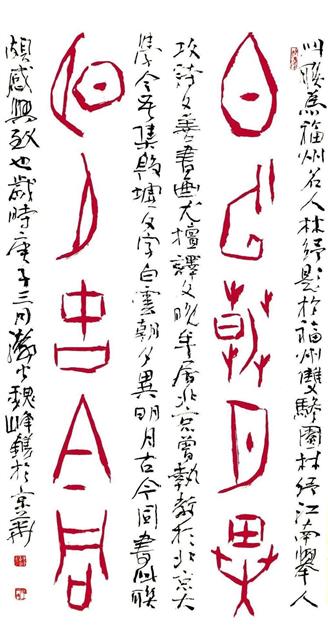 此聯為福州名人林紓題於福州雙驂園林紓江南舉人
白云朝夕異
攻詩文善書画尤擅譯文晚年居北京曾執教於北京大
學今吾集殷墟文字白雲朝夕異明月古今同書此聯
明月古今同
頗感興致也歲時庚子三月魏峰於京華